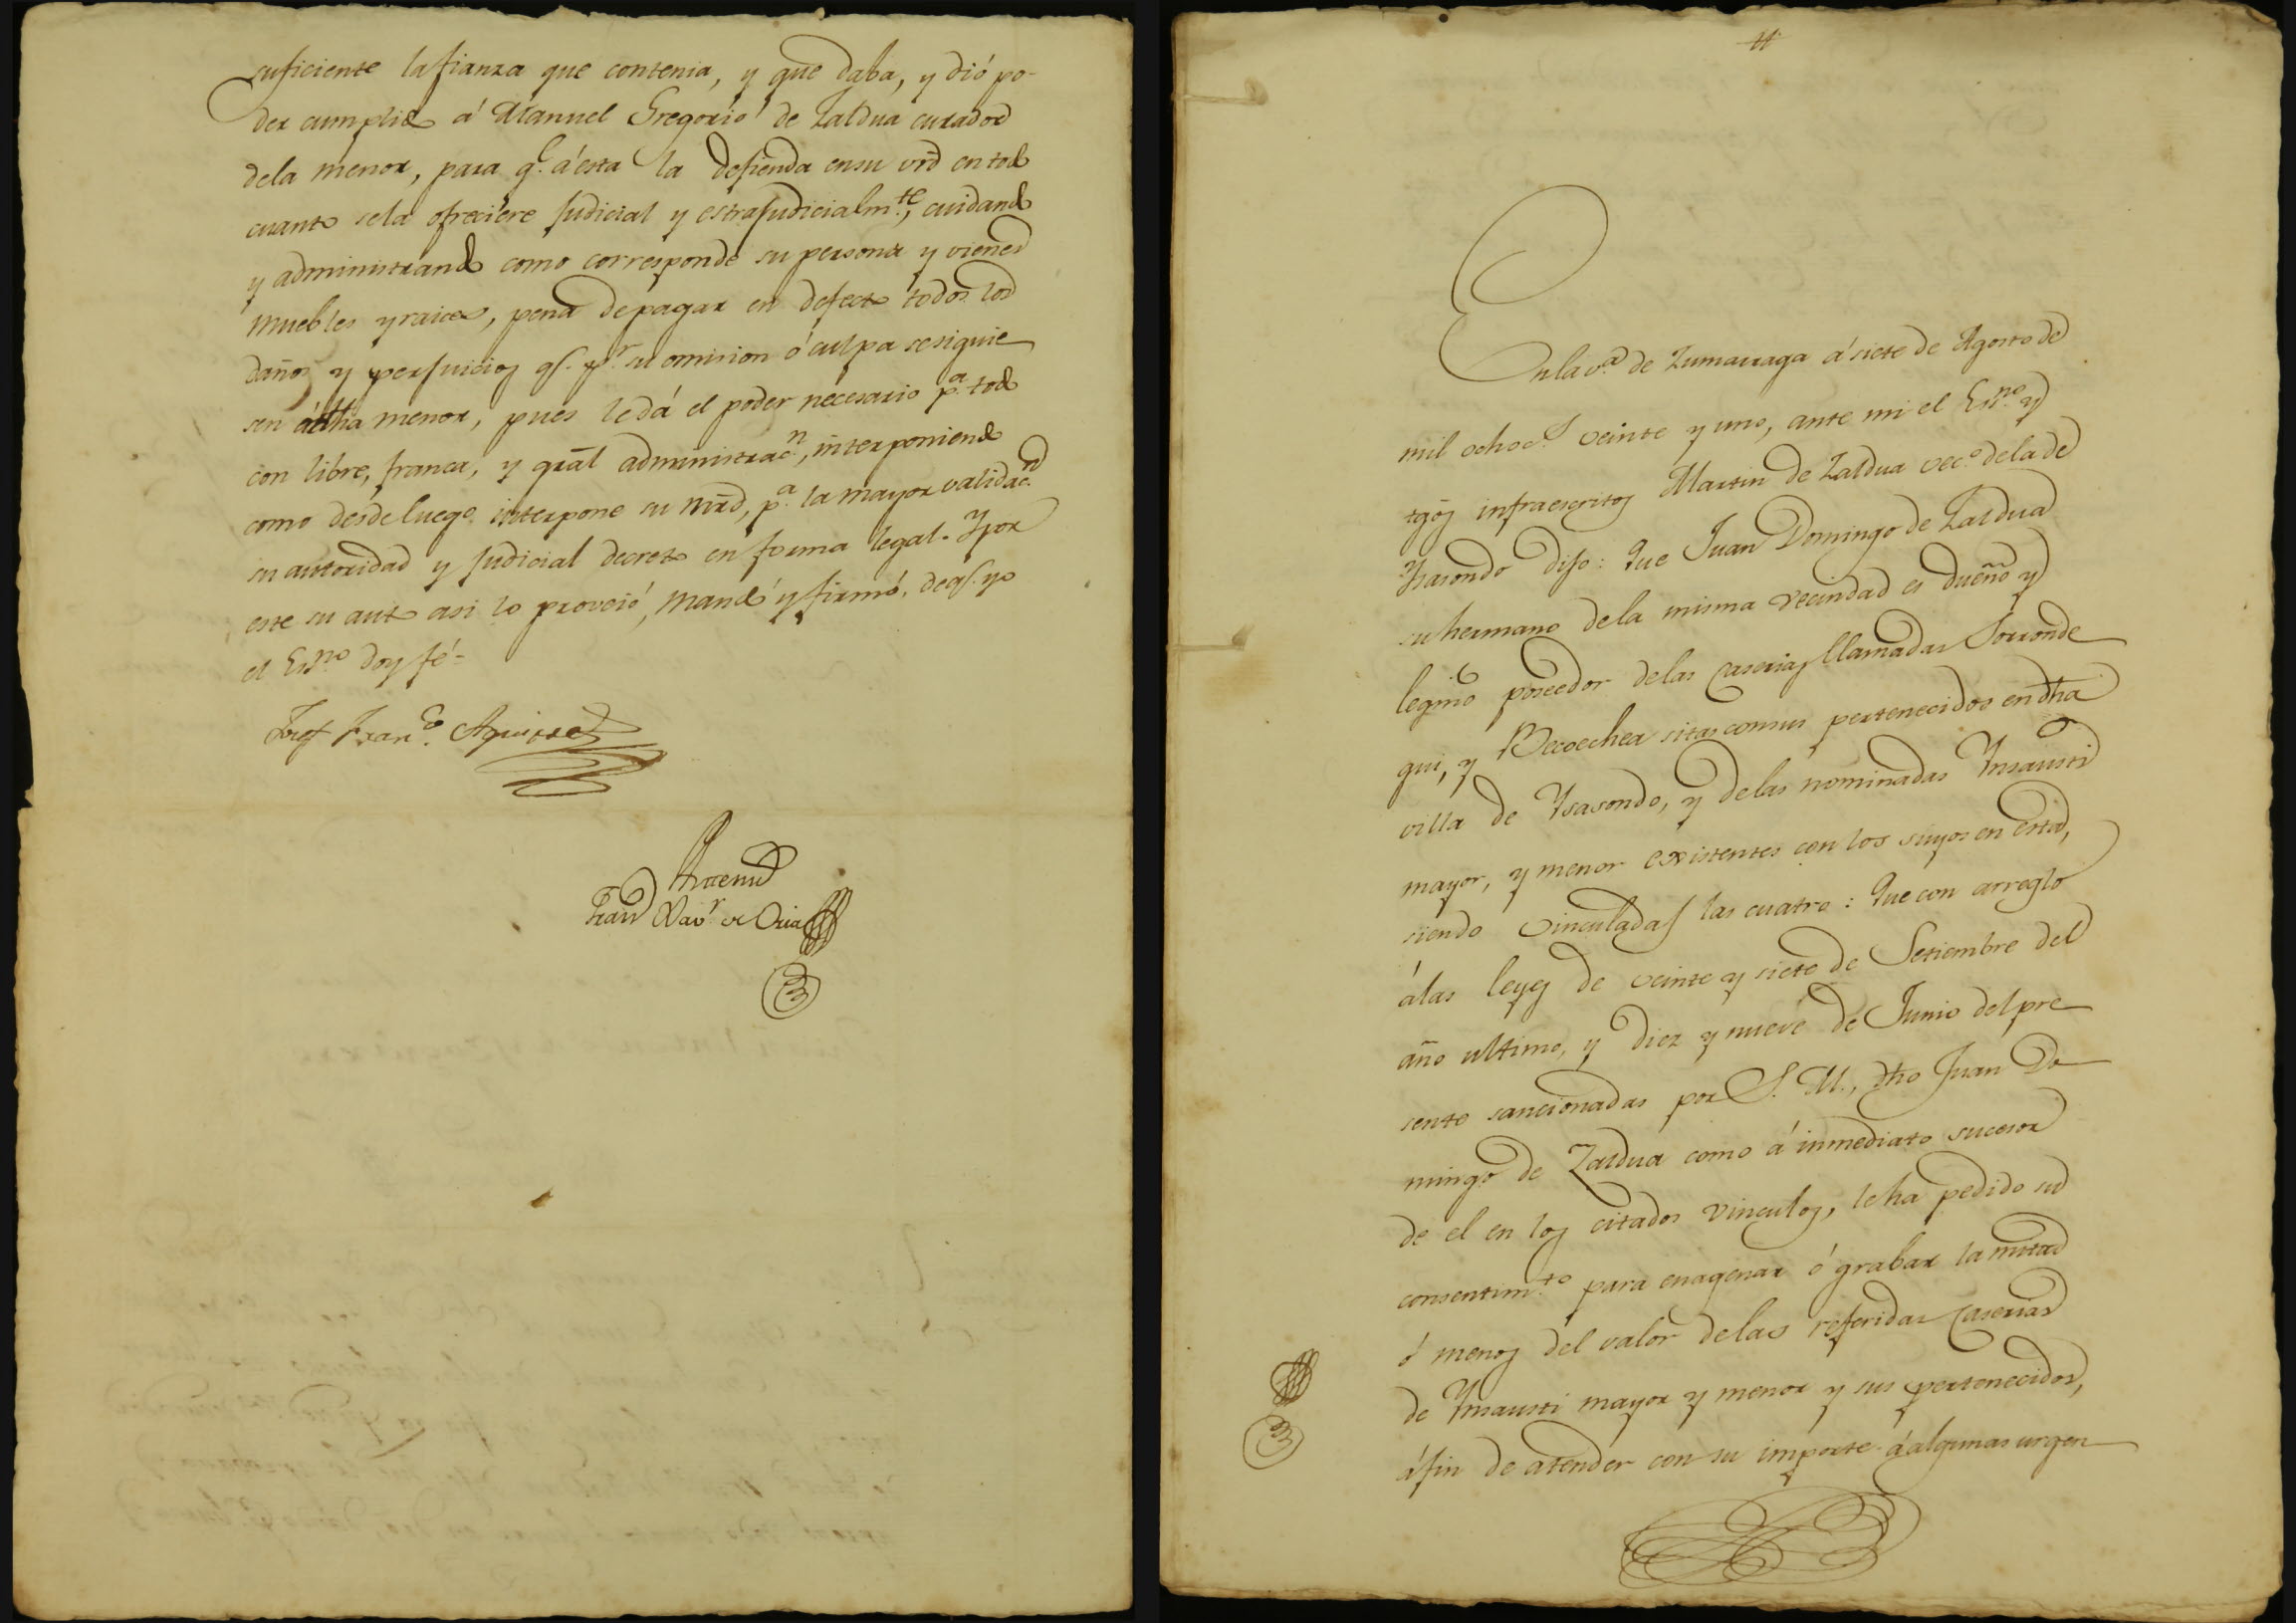 suficiente la fianza que contenia, y que daba, y dió po-
der cumplido á Manuel Gregorio de Zaldua curador
dela menor, para q.e á esta la defienda en su vrd en todo
cuanto sela ofreciere judicial y estrajudicialm.te, cuidando
y administrando como corresponde su persona y vienes
muebles y raices, pena de pagar en defecto todos los
daños y perjuicios q.e p.r su omision ó culpa se siguie
sen á dha menor, pues le dá el poder necesario p.a todo
con libre, franca, y gral administrac.n, interponiendo
como desde luego interpone su mrd, p.a la mayor validac.n
su autoridad y judicial decreto en forma legal. Y por
este su auto asi lo proveió, mandó y firmó, de q.e yo
el Essno doy fé =
Josef Fran.co Aguirre
Ante mi
Fran Xav.r de Oria
#
En la v.a de Zumarraga á siete de Agosto de
mil ochoc.s veinte y uno, ante mi el Essno y
tgos infraescritos Martin de Zaldua vec.o dela de
Ysasondo dijo: Que Juan Domingo de Zaldua
su hermano dela misma vecindad es dueño y
legmo poseedor delas caserias llamadas Sorronde
gui, y Becoechea sitas con sus pertenecidos en dha
villa de Ysasondo, y delas nominadas Ynsausti
mayor, y menor existentes con los suyos en esta,
siendo vinculadas las cuatro: Que con arreglo
álas leyes de veinte y siete de Setiembre del
año ultimo, y diez y nueve de Junio del pre
sente sancionadas por S. M., dho Juan Do
mingo de Zaldua como á inmediato sucesor
de el en los citados vinculos, le ha pedido su
consentim.to para enagenar ó grabar la mitad
ó menos del valor delas referidas caserias
de Ynsausti mayor y menor y sus pertenecidos,
áfin de atender con su importe á algunas urgen